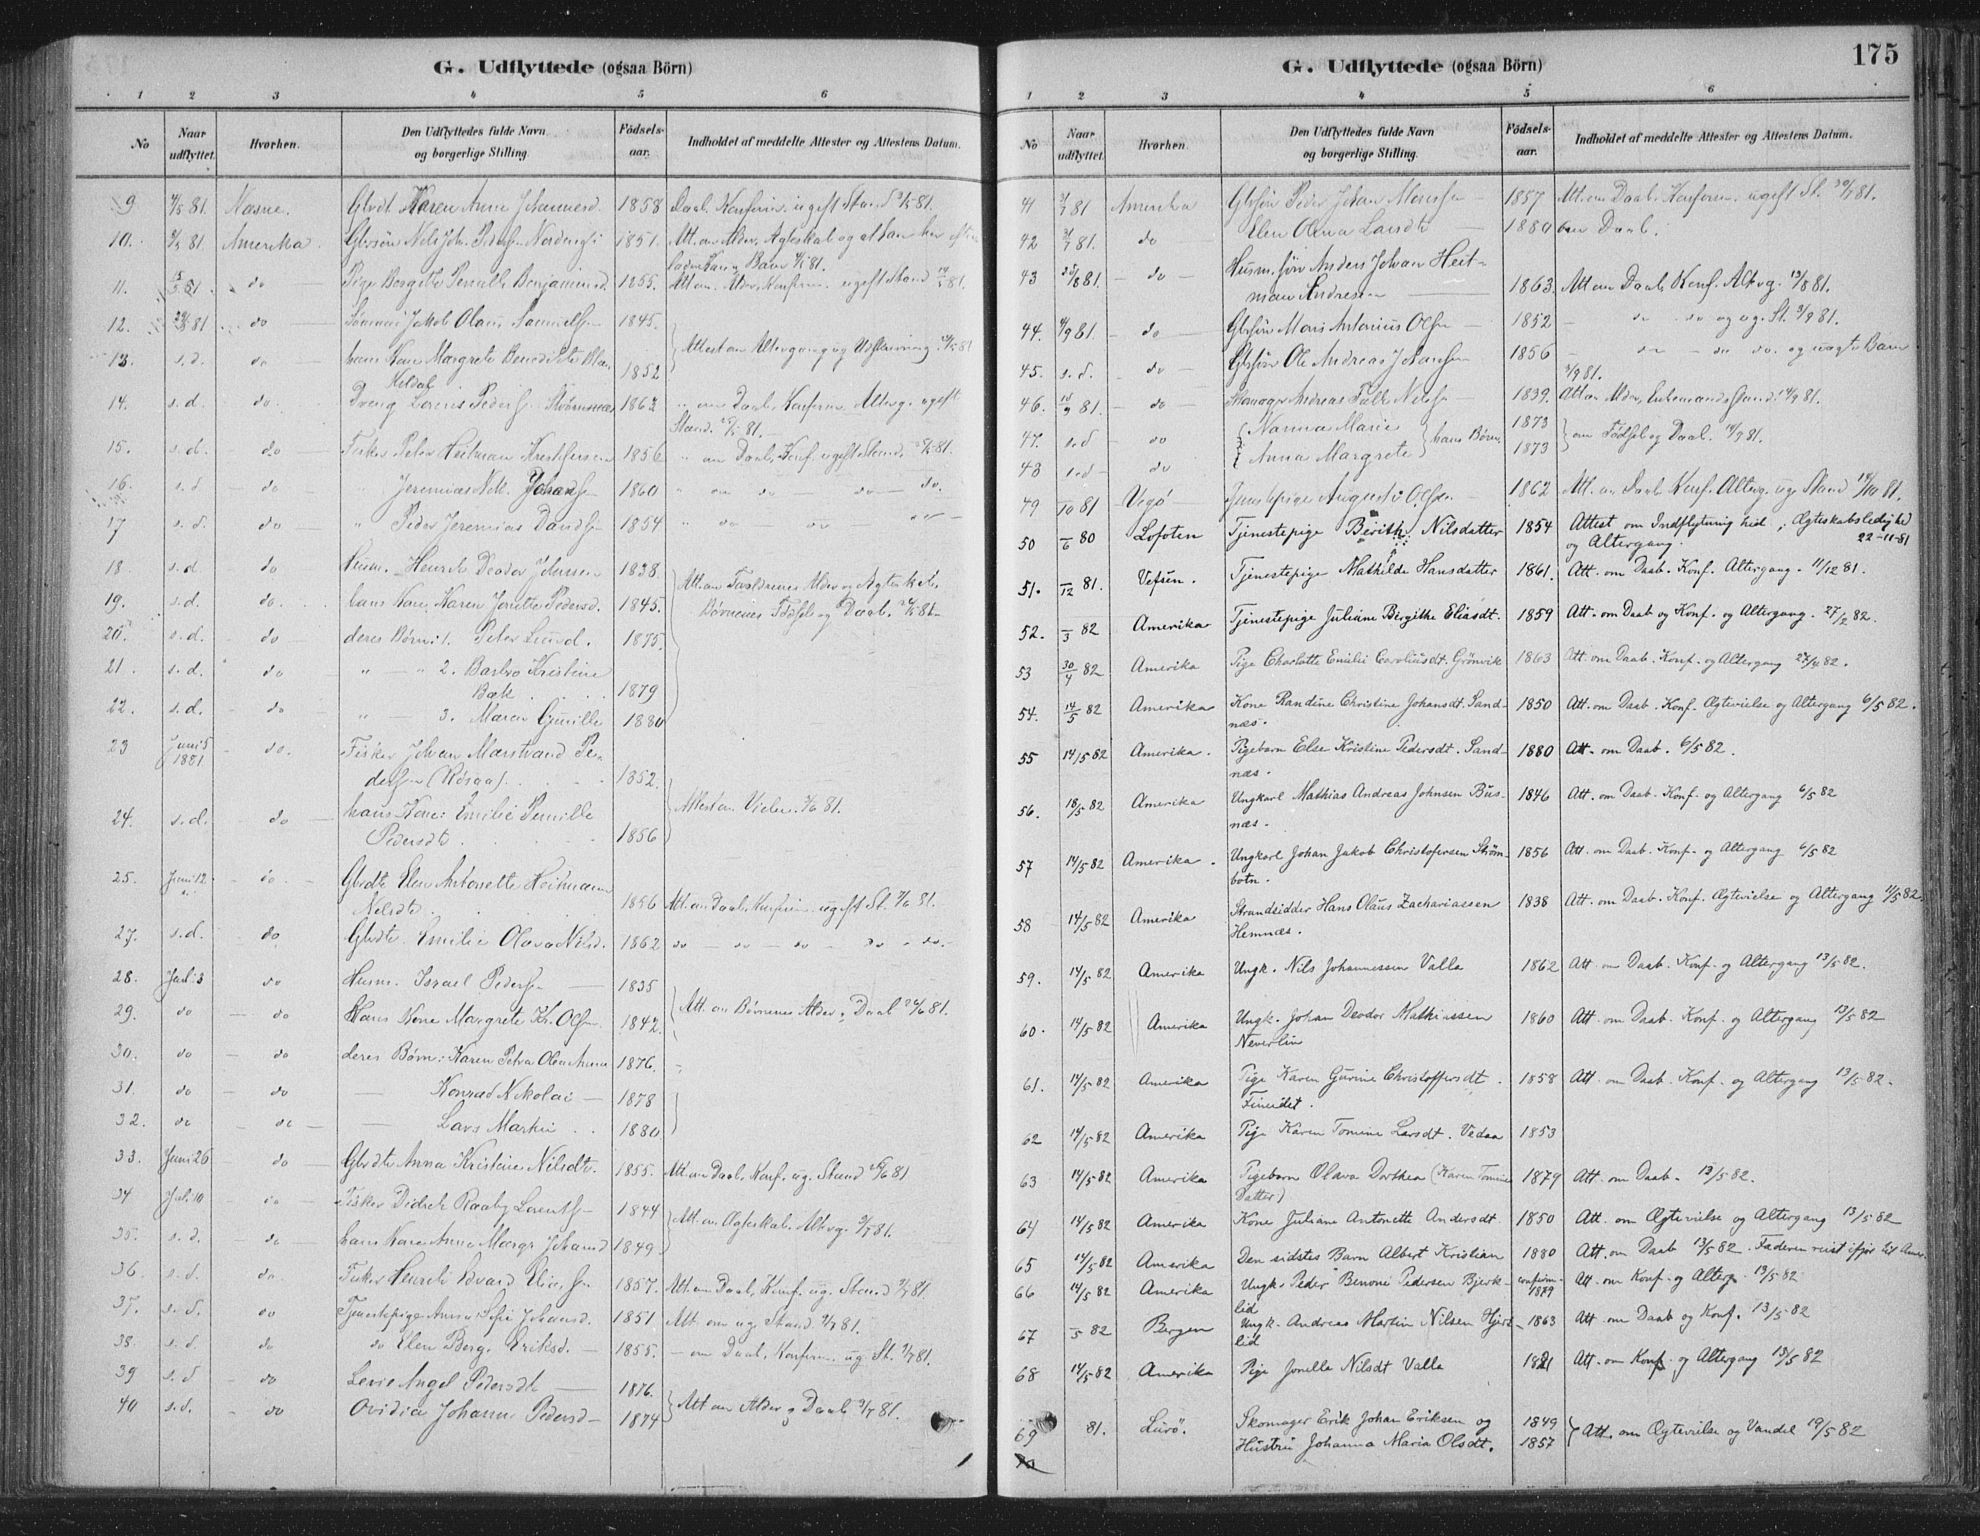 G. Udflyttede (ogsaa Börn)
1 2 3 4 5 6
No
Naar udflyttet.
Hvorhen.
Den Udflyttedes fulde Navn og borgerlige Stilling.
Fødsels-aar.
Indholdet af meddelte Attester og Attestens Datum.
9 81. Næsne. Karen Anne Johannesd. 1858 Daab, Konfirm. ugift Stand 81.
10. 81. Amerika. Nils Joh. Peders. 1851. Att. om Alder, Ægteskab og at han har
81.
11. 81. do Pige Bergitte Pernille Benjaminsd. 1855. Att. om Alder, Konfirm. ugift Stand 81.
12. 81 do Jakob Olaus Samuels. 1845.
Attest om Altergang og Udskrivning. 81
13. s.d. do hans Kone Margrete Benedikte 1852
14. s.d. do. Dreng Lorens Peders. Strømsnæs 1862 om Daab, Konfirm. Alterg. ugift
Stand. 81.
15. s.d. do Fisker Peter Heitman Kristofersen 1856 " om Daab, Konf. ugift Stand. 81.
16. s.d do " Jeremias Nik. Johans. 1860 " om do do do.
17 s.d. do " Peder Jeremias Davids. 1854 " do do
18. s.d. do Husm. Henrik Deodor Johnsen 1838.
Att. om Forældrenes Alder og Ægteskab,
19. s.d. do. hans Kone, Karen Jonette Pedersd. 1845.
Børnenes Fødsel og Daab. 81
20. s.d. do deres Børn: 1. Peter Lund. 1875.
21. s.d. do " " 2. Barbro Kristine
Bæk 1879
22. s.d. do " 3. Maren Gunille 1880
23 Juni 5 1881 do. Fisker Johan Marstrand Pe-
ders. (Røsaa) 1852.
Attest om Vielse. 81.
24. s.d. do hans Kone: Emilie Pernille
Pedersdt. 1856
25. Juni 12 do Gbrdtr Elen Antonette Heitmann
Nilsdt. 1856 Att. om Daab, Konfirm. ugift St. 81.
27. s.d. do Gbrdtr. Emilie Olava Nilsd. 1862 do do do do do.
28. Juli 3 do Husm. Israel Peders. 1835
29. do do Hans Kone Margrete Kr. Ols. 1842.
Att. om Børnenes Alder og Daab 81.
30. do do deres Børn: Karen Petra Olea Anna 1876.
31. do do Konrad Nikolai 1878
32. do do Lars Martin 1880
33. Juni 26 do Gbrdtr Anna Kristine Nilsdt. 1855. Att. om Daab, Konf. ug. Stand 81
34 Juli 10 do Fisker Didrik Raaby Lorents. 1844
Att. om Ægteskab. Altvg. 81.
35. s.d. do hans Kone Anna Margr. Johansd 1849
36. s.d. do. Fisker Henrik Edvard Elias. 1857. Att. om Daab, Konf. ug. Stand 81
37. s.d. do Tjenestepige Anna Sofie Johansd. 1851 Att. om ug. Stand 81.
38. s.d. do do Elen Berg. Eriksd. 1855. om Daab, Konfirm. ug. St. 81.
39 s.d do Lovise Angel Pedersdt 1876.
Att. om Alder og Daab 81.
40 s.d. do Ovidia Johanne Pedersd 1874
G. Udflyttede (ogsaa Börn)
175
1 2 3 4 5 6
No
Naar udflyttet.
Hvorhen.
Den Udflyttedes fulde Navn og borgerlige Stilling.
Fødsels-aar.
Indholdet af meddelte Attester og Attestens Datum.
41 81 Amerika Gbrsøn Peder Johan Monssen 1857 Att. om Daab, Konfirm. ugift St. 81.
42 81. do Elen Olena Larsdt 1880 om Daab.
43 81. do Husm.søn Anders Johan Heit-
man Andresen 1863. Att. om Daab, Konf. Altvg. 13/8 81.
44. 81. do Gbrsøn Mons Antonius Ols. 1852 do do og ug. St. 3/9 81.
45. s.d. do Gbrsøn Ole Andreas Johansen 1856 do do do. og Barn
3/9 81.
46. 81. do Skomager Andreas Falk Nils. 1839. Att. om Alder, Enkemandsstand. 81.
47. s.d do Nanna Marie 1873
hans Børn om Fødsel og Daab. 81.
48 s.d do Anna Margrete 1873
49 /10 81 Vegø Tjenestepige Augusta Olsen 1862 Att. om Daab Konf. Alterg. ug. Stand /10 81.
50 /6 80 Lofoten Tjenestepige Berith Nilsdatter 1854 Attest om Indflytning hid; Ægteskabsledighed
og Altergang. 22-11-81
51. /12 81. Vefsen. Tjenestepige Mathilde Hansdatter 1861. Att. om Daab. Konf. Altergang. 11/12 81.
52. /3 82 Amerika Tjenestepige Juliane Bergithe Eliasdt. 1859 Att. om Daab og Konf. og Altergang. 27/2 82.
53 30/4 82 Amerika Pige Charlotte Emilie Caroliusdt. Grønvik 1863 Att. om Daab. Konf. og Altergang 27/4 82.
54. 14/5 82 Amerika Kone Randine Christine Johansdt. Sand-
næs. 1850 Att. om Daab. Konf. Ægtevielse og Altergang 6/5 82.
55 14/5 82 Amerika. Pigebarn Else Kristine Pedersdt. Sand-
næs. 1880 Att. om Daab. 6/5 82.
56. 18/5 82 Amerika Ungkarl Mathias Andreas Johnsen Bus-
næs. 1846 Att. om Daab. Konf. og Altergang 6/5 82
57 14/5 82 Amerika. Ungkarl Johan Jakob Christofersen Strøm-
botn. 1856 Att. om Daab. Konf. og Altergang 6/5 82
58 14/5 82 Amerika Strandsidder Hans Olaus Zachariassen
Hemnæs. 1838 Att. om Daab. Konf. Ægtevielse og Altergang 11/5 82.
59. 14/5 82 Amerika Ungk. Nils Johannessen Valla 1862 Att. om Daab. Konf. og Altergang 13/5 82.
60. 14/5 82 Amerika Ungk. Johan Deodor Mathiassen
Neverlin 1860 Att. om Daab. Konf. og Altergang 13/5 82
61. 14/5 82 Amerika Pige Karen Gurine Christoffersdt.
Fineidet. 1858 Att. om Daab. Konf. og Altergang 13/5 82.
62 14/5 82 Amerika Pige Karen Tomine Larsdt. Vedaa 1853
63 14/5 82 Amerika Pigebarn Olava Dorthea (Karen Tomine
Datter) 1879 Att. om Daab. 13/5 82.
64 14/5 82 Amerika Kone Juliane Antonette Andersdt. 1850 Att. om Ægtevielse og Altergang 13/5 82
65 14/5 82 Amerika Den sidstes Barn Albert Kristian 1880 Att. om Daab 13/5 82. Faderen reist ifjor til Amr.
66 14/5 82 Amerika Ungk. Peder Benoni Pedersen Bjerk-
lid confirm. 1879 Att. om Konf. og Alterg. 13/5 82
67 /5 82 Bergen Ungk. Andreas Martin Nilsen Hjert-
lid 1863 Att. om Daab og Konf. 13/5 82
68 14/5 82 Amerika Pige Jonella Nilsdt Valla Att. om Konf. og Altergang 13/5 82
69 81. Lurø. Skomager Erik Johan Eriksen og 1849
Hustru Johanna Maria Olsdt. 1857 Att. om Ægtevielse og Vandel 19/5 82
70